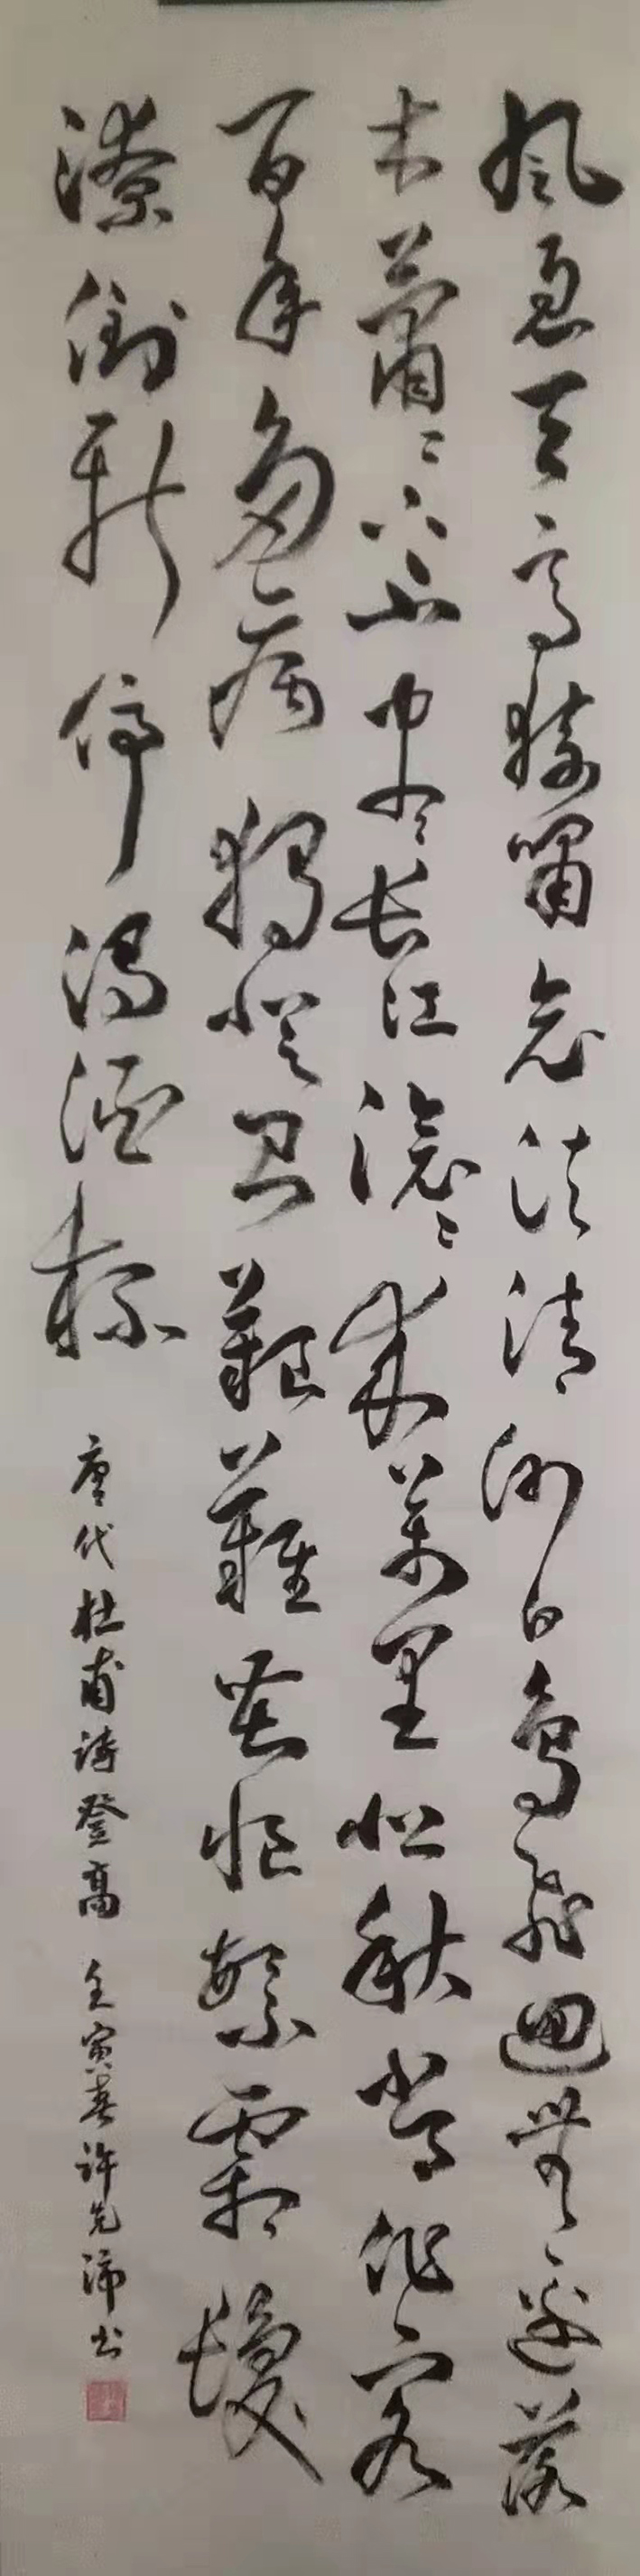 風急天高猿嘯哀渚清沙白鳥飛迴無邊落
木蕭〻下不盡長江滾〻來萬里悲秋常作客
百年多病獨登台艱難苦恨繁霜鬢
潦倒新停濁酒杯 唐代杜甫诗登高 壬寅春许先沛书